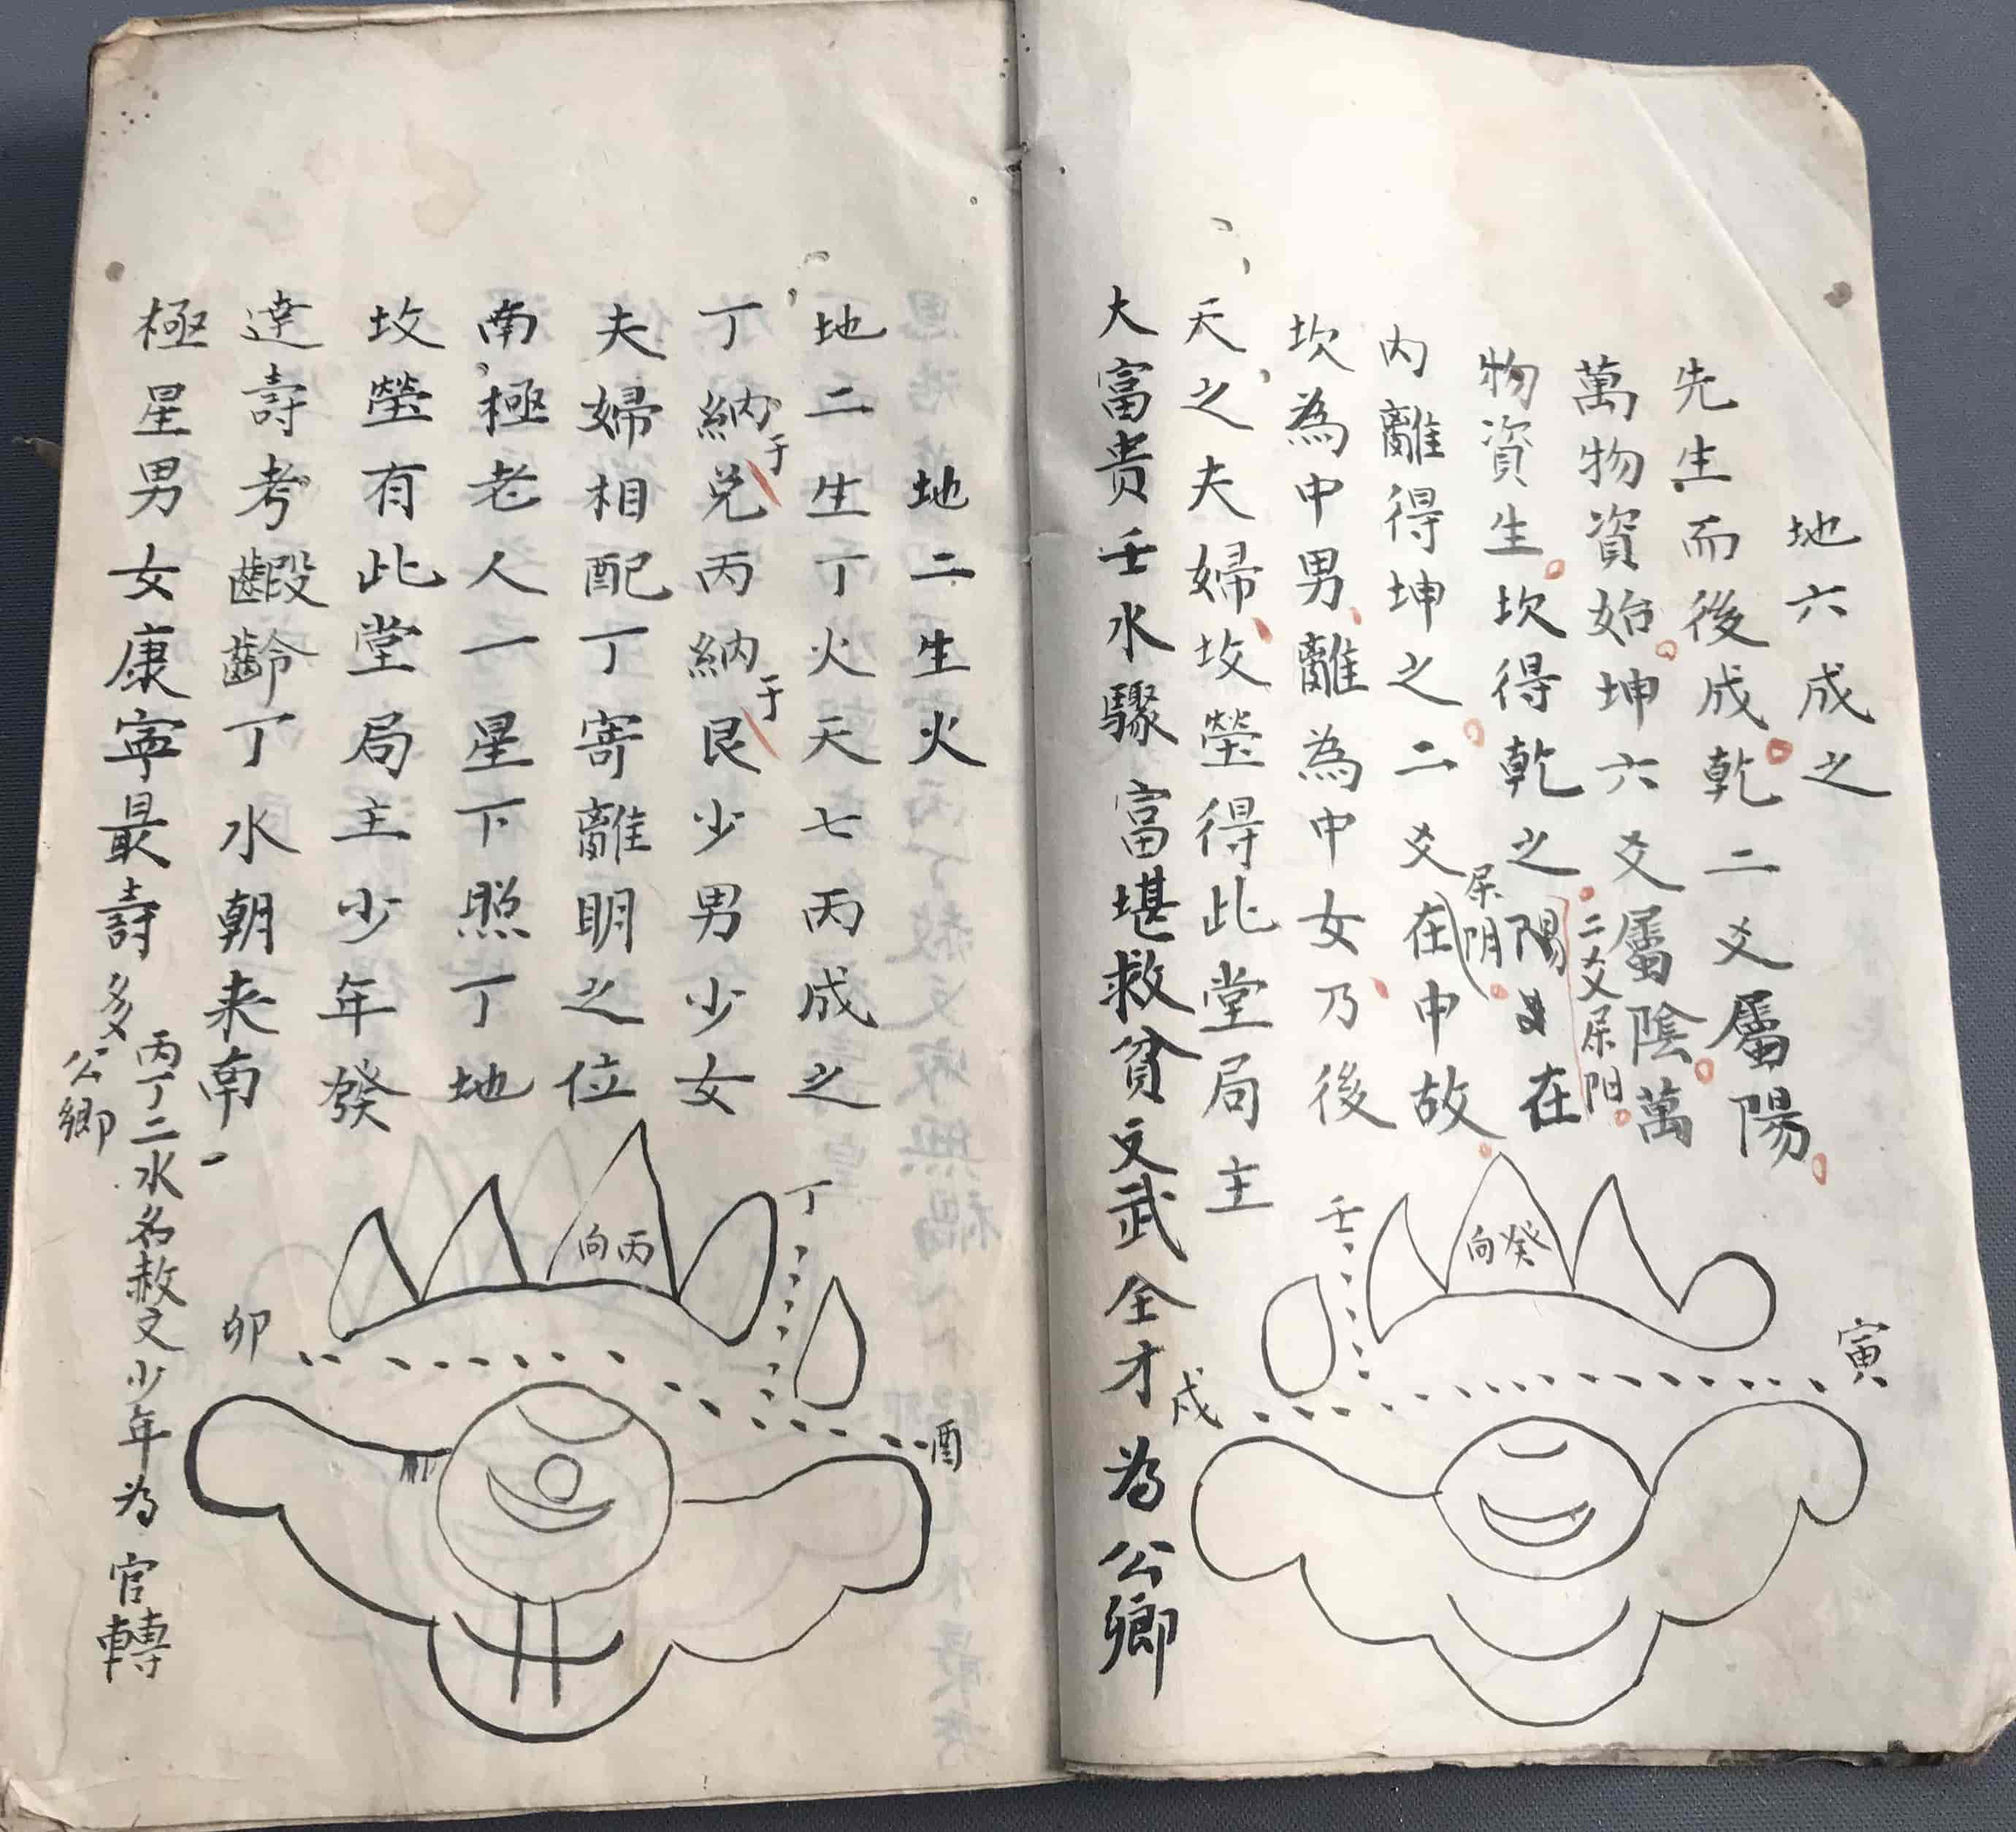 地六成之
先生而後成乾二爻屬陽
萬物資始坤六爻屬陰萬
物資生坎得乾之陽在
二爻屎阳
内離得坤之二爻在中故
屎阴
坎為中男離為中女乃後
天之夫婦坟塋得此堂局主
大富貴壬水驟富堪救貧文武全才為公卿
壬
向癸
寅
戌
地二生火
地二生丁火天七丙成之
丁納于兌丙納于艮少男少女
夫婦相配丁寄離明之位
南極老人一星下照丁地
坟塋有此堂局主少年發
達壽考齦齡丁水朝来南
極星男女康寧最壽多
丙丁二水名赦文少年為官轉
公卿
丁
向丙
卯
酉